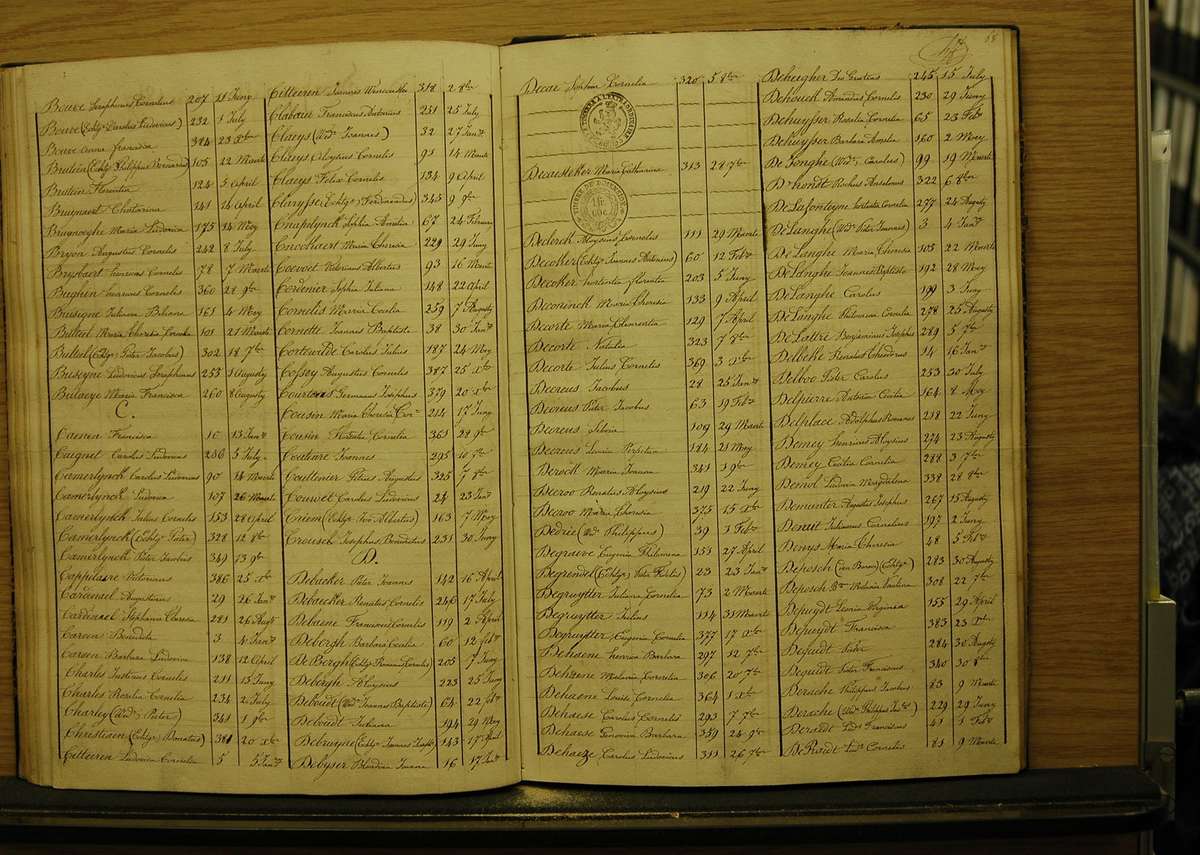 68
Bouve Josephinus Cornelius 207 11 Juny
Bouve (Echtge Carolus Ludovicus) 232 1 July
Bouve Anna Francisca 384 23 Xbr
Brutein (Echtge Philippus Bernardus) 105 22 Maerte
Brutein Florentia 124 5 April
Bruynaert Catarina 141 14 April
Brugnoeghe Maria Ludovica 175 14 Mey
Bryon Augustus Cornelis 242 8 July
Brysbaert Henricus Cornelis 78 7 Maerte
Bughen Henricus Cornelis 360 28 9br
Busigne Juliana 161 4 Mey
Butteel Maria Theresia 101 21 Maerte
Butteel (Echtge Peter Jacobus) 302 18 7br
Buseyne Ludovicus Josephinus 253 1 Augusty
Butaeye Maria Francisca 260 8 Augusty
C.
Caenen Francisca 16 13 Janr
Caignet Carolus Ludovicus 236 5 July
Camerlynck Carolus Ludovicus 90 14 Maerte
Camerlynck Ludovica 107 26 Maerte
Camerlynck Julius Cornelis 153 28 April
Camerlynck (Echtge Peter) 328 12 8br
Camerlynck Peter Jacobus 349 13 9br
Cappelaire Victorinus 386 25 Xbr
Cardinael Augustinus 29 26 Janr
Cardinael Stephania Cloresia 281 26 Augt
Careen Benedicta 3 4 Janr
Careen Barbara Ludovica 138 12 April
Charles Justinus Cornelis 211 13 Juny
Charles Rosalia Cornelia 234 2 July
Charley (Wed. Peter) 341 1 9br
Christiaen (Echtge Donatus) 381 20 Xbr
Citteiren Ludovica Cornelia 5 5 Janr
Citteiren Joannes 318 2 8br
Clabau Franciscus Antonius 251 25 July
Claeys (Wed. Joannes) 32 27 Janr
Claeys Aloysius Cornelis 91 14 Maerte
Claeys Felix Cornelis 134 9 April
Claeysse (Echtge Ferdinandus) 345 9 9br
Cnapelynck Sophia Amelia 67 24 Februar
Cnockaert Maria Theresia 229 29 Juny
Coevoet Victorinus Albertus 93 16 Maerte
Cordenier Sophia Juliana 148 22 April
Cornelis Maria Coralia 259 7 Augusty
Cornette Joannes Baptiste 38 30 Janr
Cortewilde Carolus Julius 187 24 Mey
Cossey Augustus Cornelis 387 25 Xbr
Courtens Germanus Josephus 379 20 Xbr
Cousin Maria Theresia 214 17 Juny
Cousin Hortentia Cornelia 361 28 9br
Couttaire Joannes 295 10 7br
Couttenier Petrus Augustus 325 7 8br
Couvet Carolus Ludovicus 24 23 Janr
Criem (Echtge Ivo Albertus) 163 7 Mey
Crousch Josephus Benedictus 231 30 Juny
D.
Debacker Peter Joannes 142 16 April
Debaecker Renatus Cornelis 246 17 July
Debaene Franciscus Cornelis 119 2 April
Debergh Barbara Coralia 60 12 Febr
De Bergh (Echtge Romanus Cornelis) 205 7 Juny
Debergh Aloysius 223 25 Juny
Deboudt (Wed. Joannes Baptiste) 64 22 Febr
Deboudt Juliana 194 29 Mey
Debruyne (Echtge Joannes Josephus) 143 17 April
Debyser Blandina Joanna 16 17 Janr
Decae Sophia Cornelia 320 5 8br
Decaesteker Maria Catharina 313 28 7br
Declerck Aloysius Cornelis 111 29 Maerte
Decoker (Echtge Joannes Antonius) 60 12 Febr
Decoker Hortentia Florentia 203 5 Juny
Deconinck Maria Theresia 133 9 April
Decorte Maria Clementia 129 7 April
Decorte Natalia 323 7 8br
Decorte Julius Cornelis 369 3 Xbr
Decreus Jacobus 28 25 Janr
Decreus Peter Jacobus 63 19 Febr
Decreus Silvia 109 29 Maerte
Decreus Perpetua 184 21 Mey
Derock Maria Joanna 341 1 9br
Decroo Renatus Aloysius 219 22 Juny
Decroo Maria Theresia 375 15 Xbr
Dedrie (Wed. Philippus) 39 3 Febr
Degrauve Eugenia Philomena 151 27 April
Degrendel (Echtge Peter Karolus) 23 23 Janr
Degruytter Juliana Cornelia 73 2 Maerte
Degruytter Julius 114 31 Maerte
Degruytter Eugenia Cornelia 377 17 Xbr
Dehaene Henrica Barbara 297 12 7br
Dehaene Melania Cornelia 306 20 7br
Dehaene Louise Cornelia 364 1 Xbr
Dehaese Carolus Cornelis 293 7 7br
Dehaese Genovia Barbara 359 24 9br
Dehauze Carolus Ludovicus 311 26 7br
Deheugher Deo Gratias 245 15 July
Dehouck Amandus Cornelis 230 29 Juny
Deheysser Rosalia Cornelia 65 23 Febr
Deheysser Barbara Amelia 160 2 Mey
De Jonghe (Wed. Carolus) 99 19 Maerte
D'hondt Rochus Anselmus 322 6 8br
De Lafonteyne Hortentia Cornelia 277 24 Augusty
De Langhe (Wed. Peter Joannes) 3 4 Janr
De Langhe Maria Theresia 105 22 Maerte
De Langhe Joannes Baptiste 192 28 Mey
De Langhe Carolus 199 3 Juny
De Langhe Philomena Cornelia 278 25 Augusty
De Lattre Benjaminus Josephus 289 5 7br
Delbeke Renatus Theodorus 14 16 Janr
Delboo Peter Carolus 253 30 July
Delpierre Antonia Cecilia 164 8 Mey
Delplace Adolphus Romanus 218 22 Juny
Demey Henricus Aloysius 274 23 Augusty
Demey Cecilia Cornelia 288 3 7br
Demol Ludovica Magdalena 338 28 8br
Demunter Augustus Josephus 267 15 Augusty
Denuit Julianus Cornelius 197 2 Juny
Denys Maria Theresia 48 5 Febr
Deposch (Echtge) 283 30 Augusty
Deposch Melania Paulina 308 22 7br
Depuydt Leonia Virginia 155 29 April
Depuydt Francisca 383 23 Xbr
Dequidt Peter 284 30 Augusty
Dequidt Peter Franciscus 340 30 8br
Derache Philippus Jacobus 83 9 Maerte
Derache (Wed. Philippus Jac.) 229 29 Juny
Deraedt Lud. Franciscus 41 1 Febr
De Raedt Lud. Cornelis 81 9 Maerte